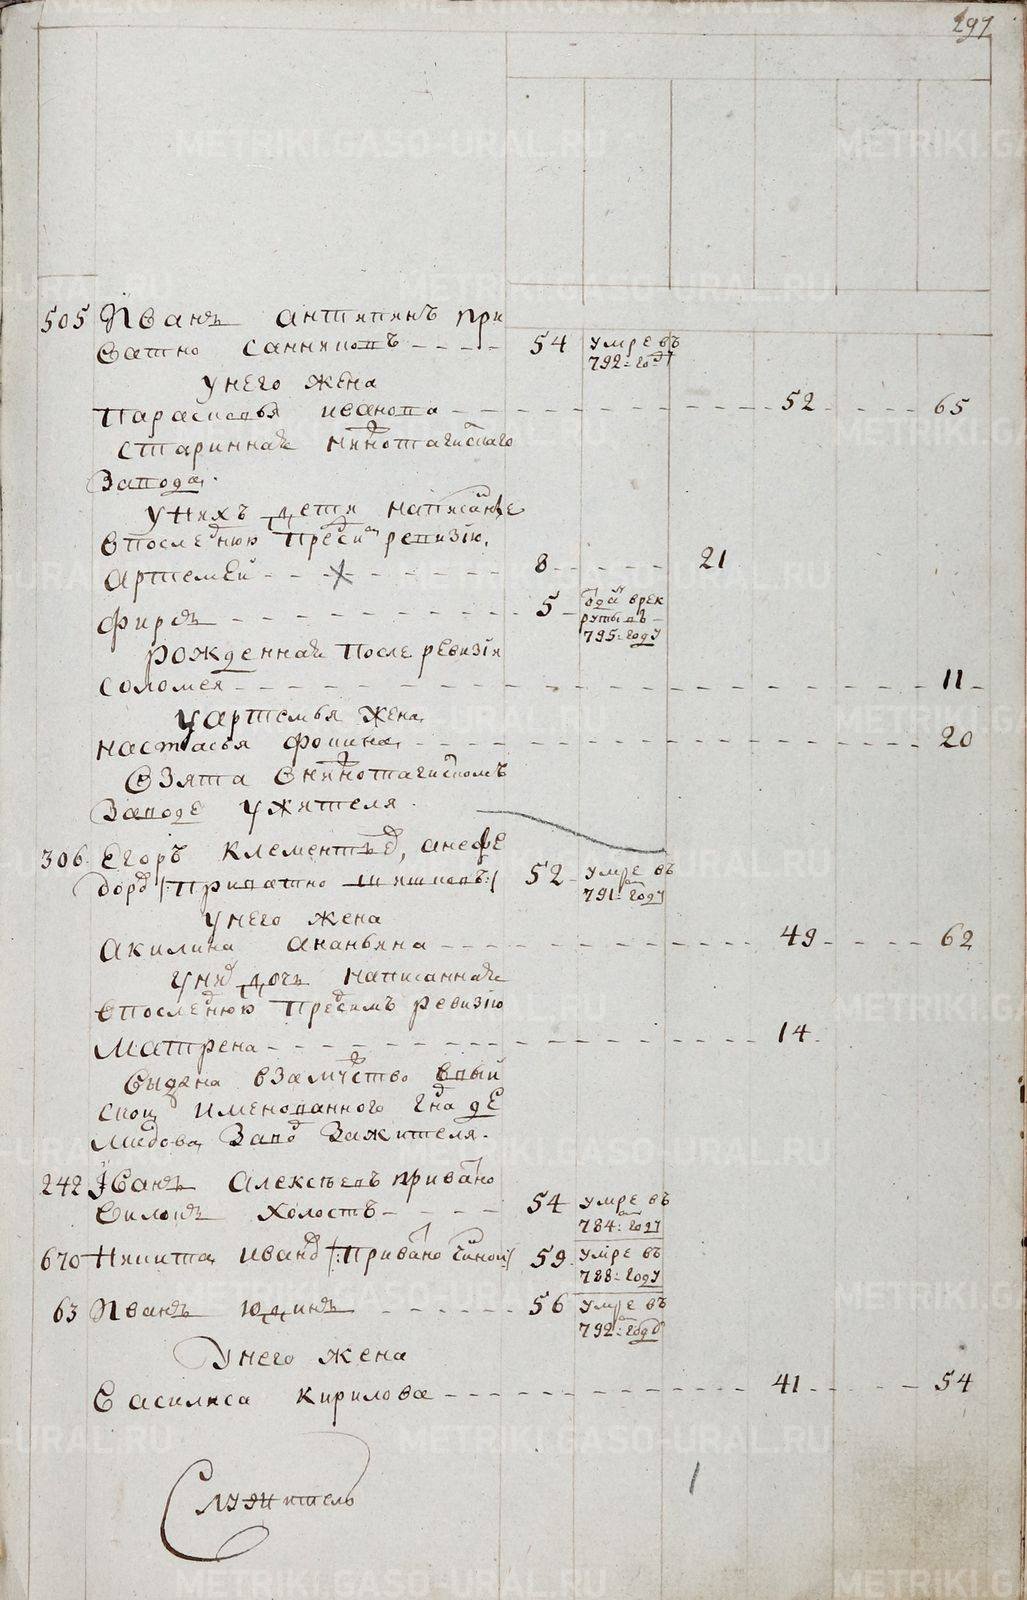 297
505 Иванъ антипинъ при
ватно санниковъ 54 умре въ
792: году
у него жена
Парасковья иванова 52 65
стариннаѧ нижнотагилскаго
Завода.
у нихъ дети написанные
в последнюю пред сим ревизию.
Артемей 8 21
фирсъ 5 отдан в рек
руты въ
795: году
рожденнаѧ после ревизіи
соломея 11
у артемья жена
настасья фомина 20
взята в нижнотагилскомъ
Заводе у жителя.
306. Егоръ клементьевъ, а не фе
доровъ /:приватно 52 умре въ
791: году
у него жена
акилина ананьина 49 62
у них дочь написаннаѧ
в последнюю пред симъ ревизию
Матрена 14
выдана в замужство в вы
имѧнованного гна де
мидова завод за жителя.
242 Іванъ Алексеевъ приватно
холостъ 54 умре въ
784: году
670 Никита Ивановъ /:приватно 59 умре въ
788: году
63 Иванъ юдинъ 56 умре въ
792: году
У него жена
Василиса Кирилова 41 54
Служитель